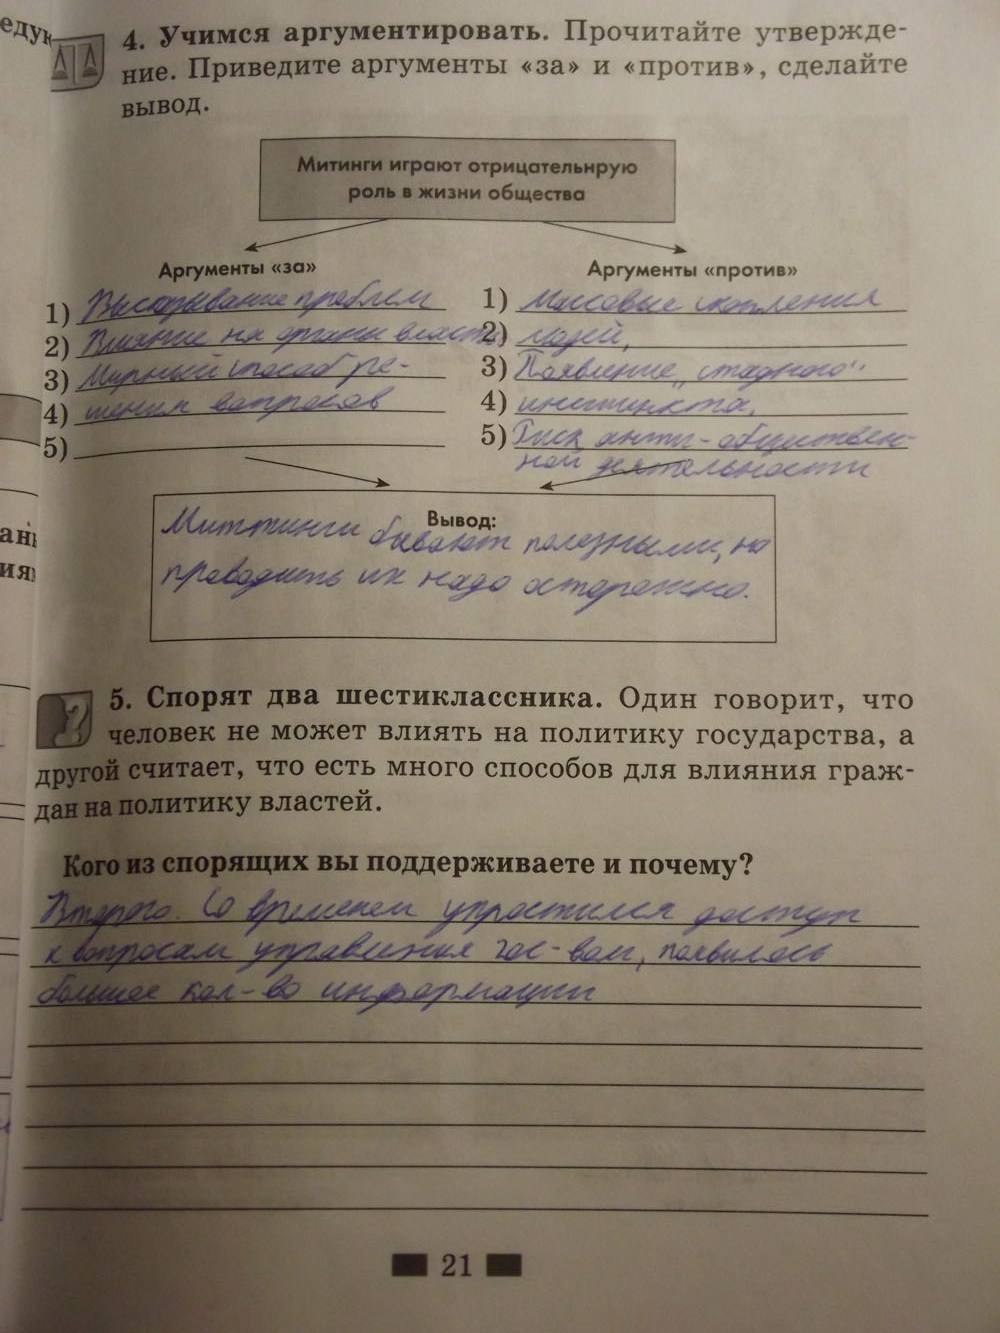 едук
4. Учимся аргументировать. Прочитайте утвержде-
ние. Приведите аргументы «за» и «против», сделайте
вывод.
Митинги играют отрицательнрую
роль в жизни общества
Аргументы «за»
Аргументы «против»
1) Высказывание проблем
1) Массовые скопления
2) Влияние на органы власти
2) людей,
3) Мирный способ ре-
3) Появление „стадного"
4) шения вопросов
4) инстинкта,
5)
5) Риск анти-обществен-
ной деятельности
Вывод:
Миттинги бывают полезными, но
проводить их надо осторожно.
ань
ия
5. Спорят два шестиклассника. Один говорит, что
человек не может влиять на политику государства, а
другой считает, что есть много способов для влияния граж-
дан на политику властей.
Кого из спорящих вы поддерживаете и почему?
Второго. Со временем упростился доступ
к вопросам управления гос-вом, появилось
большое кол-во информации
21